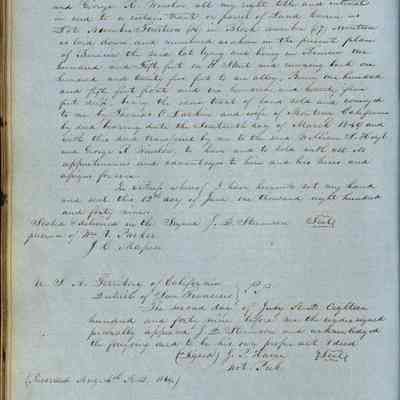 and George R. Winslow all my right title and interest
in and to a certain tract or parcel of Land known as
Lot Number Fourteen (14) in Block number (17) seventeen
as laid down and numbered as shown in the present plan
of Benicia the said Lot lying and being in Benicia one
hundred and fifty feet on Street and running back one
hundred and twenty five feet to an alley, Being one hundred
and fifty feet front and one hundred and twenty five
feet deep, being the same tract of land sold and conveyed
to me by Thomas O. Larkin and wife of Monterey California
by deed bearing date the day of March 1849 and
with this deed transferred by me to the said William H. Hoyt
and George R. Winslow to have and to hold with all its
appurtenances and advantages to him and his heirs and
assigns forever.
In witness whereof I have hereunto set my hand
and seal this 12th day of June one thousand eight hundred
and forty nine.
Sealed & delivered in the Signed J. D. Stevenson Seal
presence of Wm. A. Parker
J. C.
U. S. A. Territory of California
District of San Francisco
The second day of July A.D. Eighteen
hundred and forty nine before me the undersigned
personally appeared J. D. Stevenson and acknowledged
the foregoing deed to be his own proper act & deed
(Signed) J. P. Seal
Not. Pub.
(Recorded Aug. A.D. 1849)